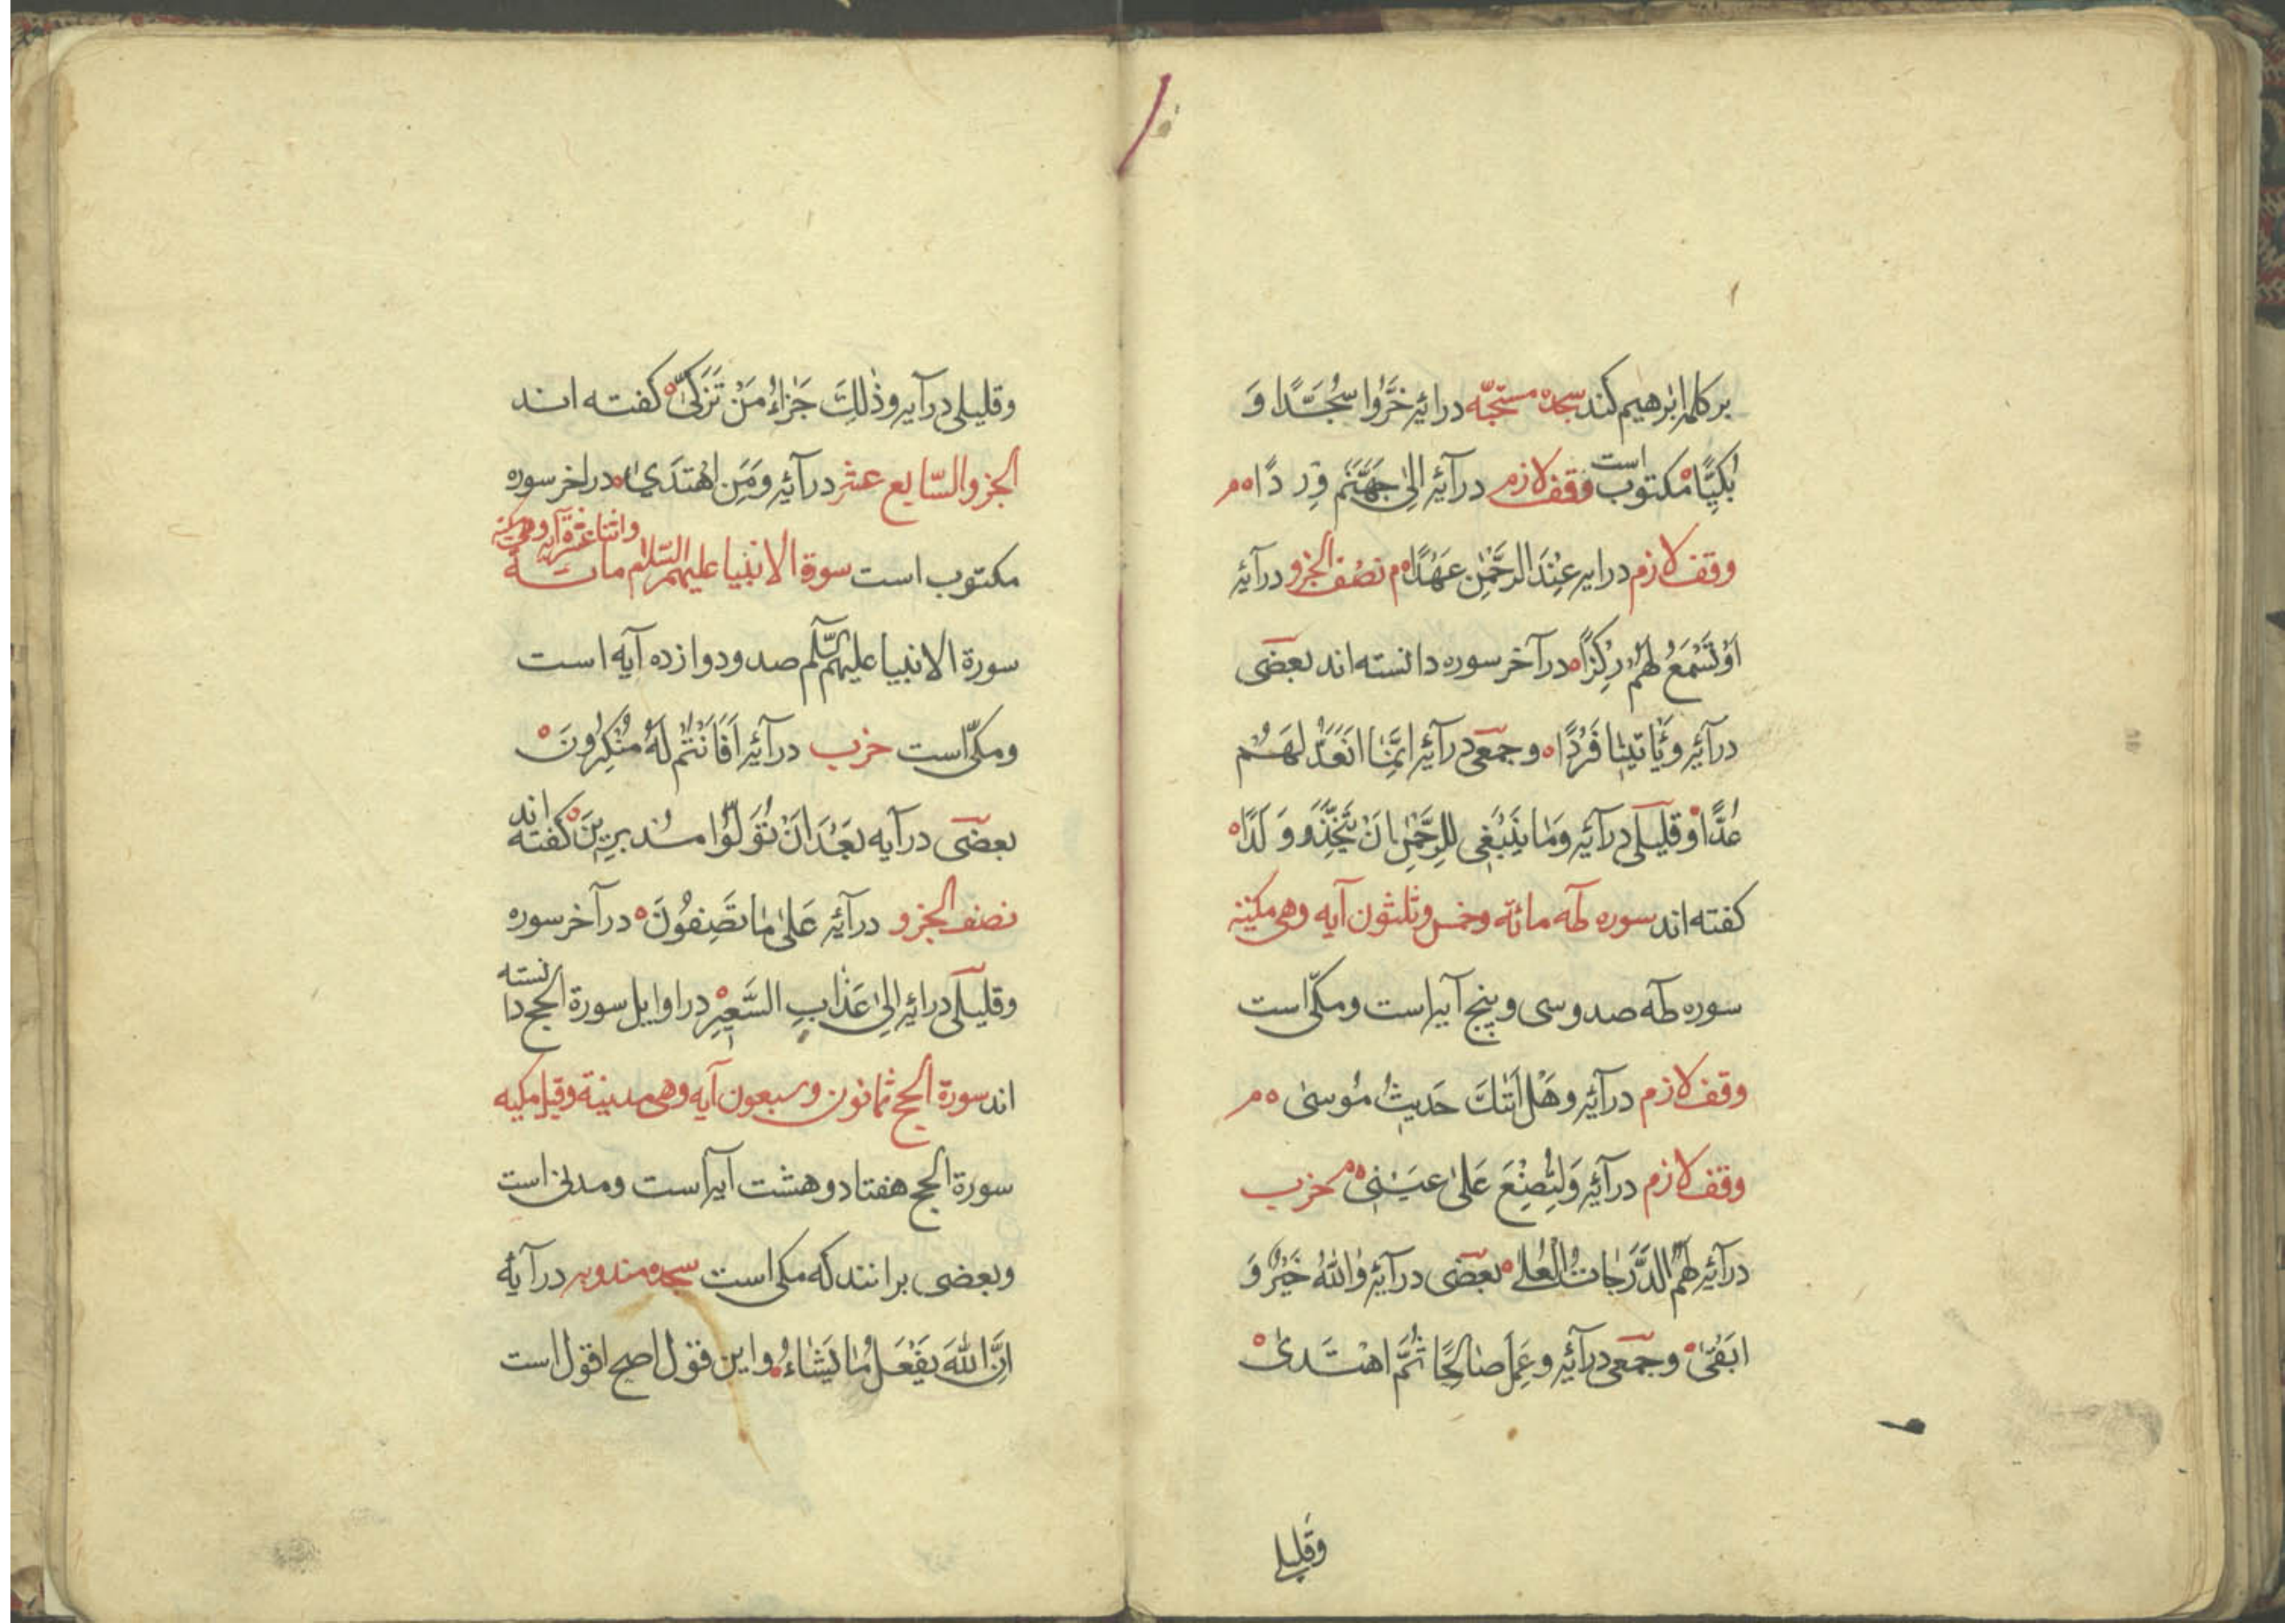 بر كلمه ابرهيم كند سجده مستحبّه درائيه خَرُّوا سُجَّدًا وَ
بُكِيًّا مكتوب است وقف لازم درآئيه اِلىٰ جَهَنَّمَ وِرْدًا ه م
وقف لازم درايه عِنْدَ الرَّحْمٰنِ عَهْدًا ه م نصف الجزو درآئيه
اَوْ تَسْمَعُ لَهُمْ رِكْزًا ه درآخر سوره دانسته اند بعضى
درآئيه وَيَأتيْنٰا فَرْدًا ه وجمعى درآئيه اِنَّمٰا نَعُدُّ لَهُمْ
عَدًّا ه وقليلى درآئيه وَمٰا يَنْبَغِى لِلرَّحْمٰنِ اَنْ يَتَّخِذَ وَلَدًا ه
كفته اند سوره طه مائة وخمس وثلثون آيه وهى مكيّة
سوره طه صد وسى وپنج آيه است ومكّى است
وقف لازم درآئيه وَهَلْ اَتٰكَ حَديثُ مُوسىٰ ه م
وقف لازم درآئيه وَلِتُصْنَعَ عَلىٰ عَيْنى ه م حزب
درآئيه لَهُمُ الدَّرَجٰاتُ الْعُلىٰ ه بعضى درآئيه وَاللّٰهُ خَيْرٌ وَ
اَبْقىٰ ه وجمعى درآئيه وعَمِلَ صٰالِحًا ثُمَّ اهْتَدىٰ ه
وقليلى
وقليلى درآيه وذٰلِكَ جَزٰاءُ مَنْ تَزَكّىٰ ه كفته اند
الجزو السّابع عشر درآئيه وَمَنِ اهْتَدىٰ ه دراخر سوره
مكتوب است سورة الانبيا عليهم السّلام مائة واثنا عشرة آيه وهى مكيّة
سورة الانبيا عليهم السّلم صد ودوازده آيه است
ومكّى است حزب درآئيه اَفَاَنْتُمْ لَهُ مُنْكِرُونَ ه
بعضى درآيه بَعْدَ اَنْ تُوَلُّوا مُدْبِرينَ ه كفته اند
نصف الجزو درآئيه عَلىٰ مٰا تَصِفُونَ ه درآخر سوره
وقليلى درائيه اِلىٰ عَذٰابِ السَّعيرِ ه دراوايل سورة الحج دانسته
اند سورة الحج ثمانون وسبعون آيه وهى مدنية وقيل مكيه
سورة الحج هفتاد وهشت آيه است ومدنى است
وبعضى برانند كه مكى است سجده مندوبه درآيه
اِنَّ اللّٰهَ يَفْعَلُ مٰا يَشٰاءُ ه واين قول اصح اقول است